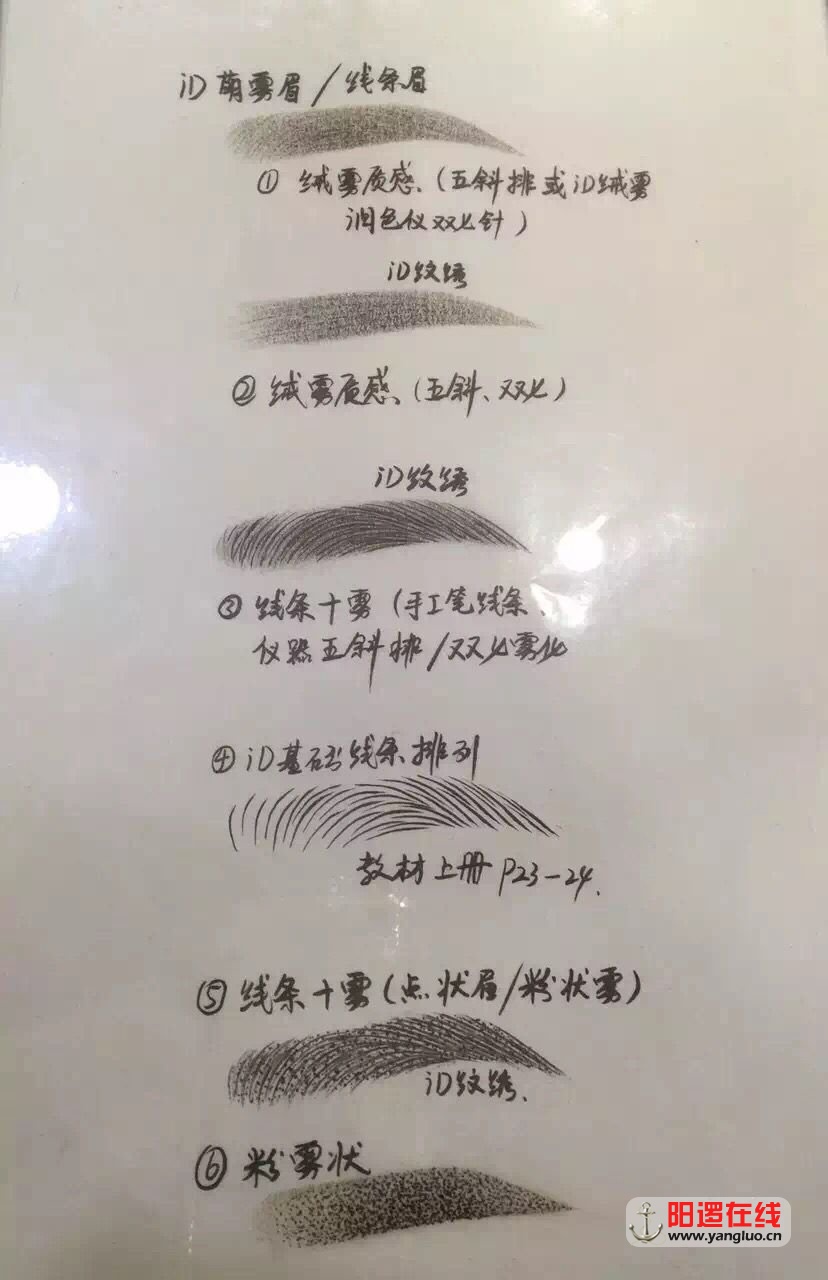 iD萌雾眉/线条眉
① 绒雾质感、(五斜排或iD绒雾
润色仪双七针)
iD纹绣
② 绒雾质感、(五斜、双七)
iD纹绣
③ 线条十雾(手工笔线条、
仪器五斜排/双七雾化
④ iD基础线条排列
教材上册P23-24.
⑤ 线条十雾(点状眉/粉状雾)
iD纹绣、
⑥ 粉雾状
阳逻在线
www.yangluo.cn